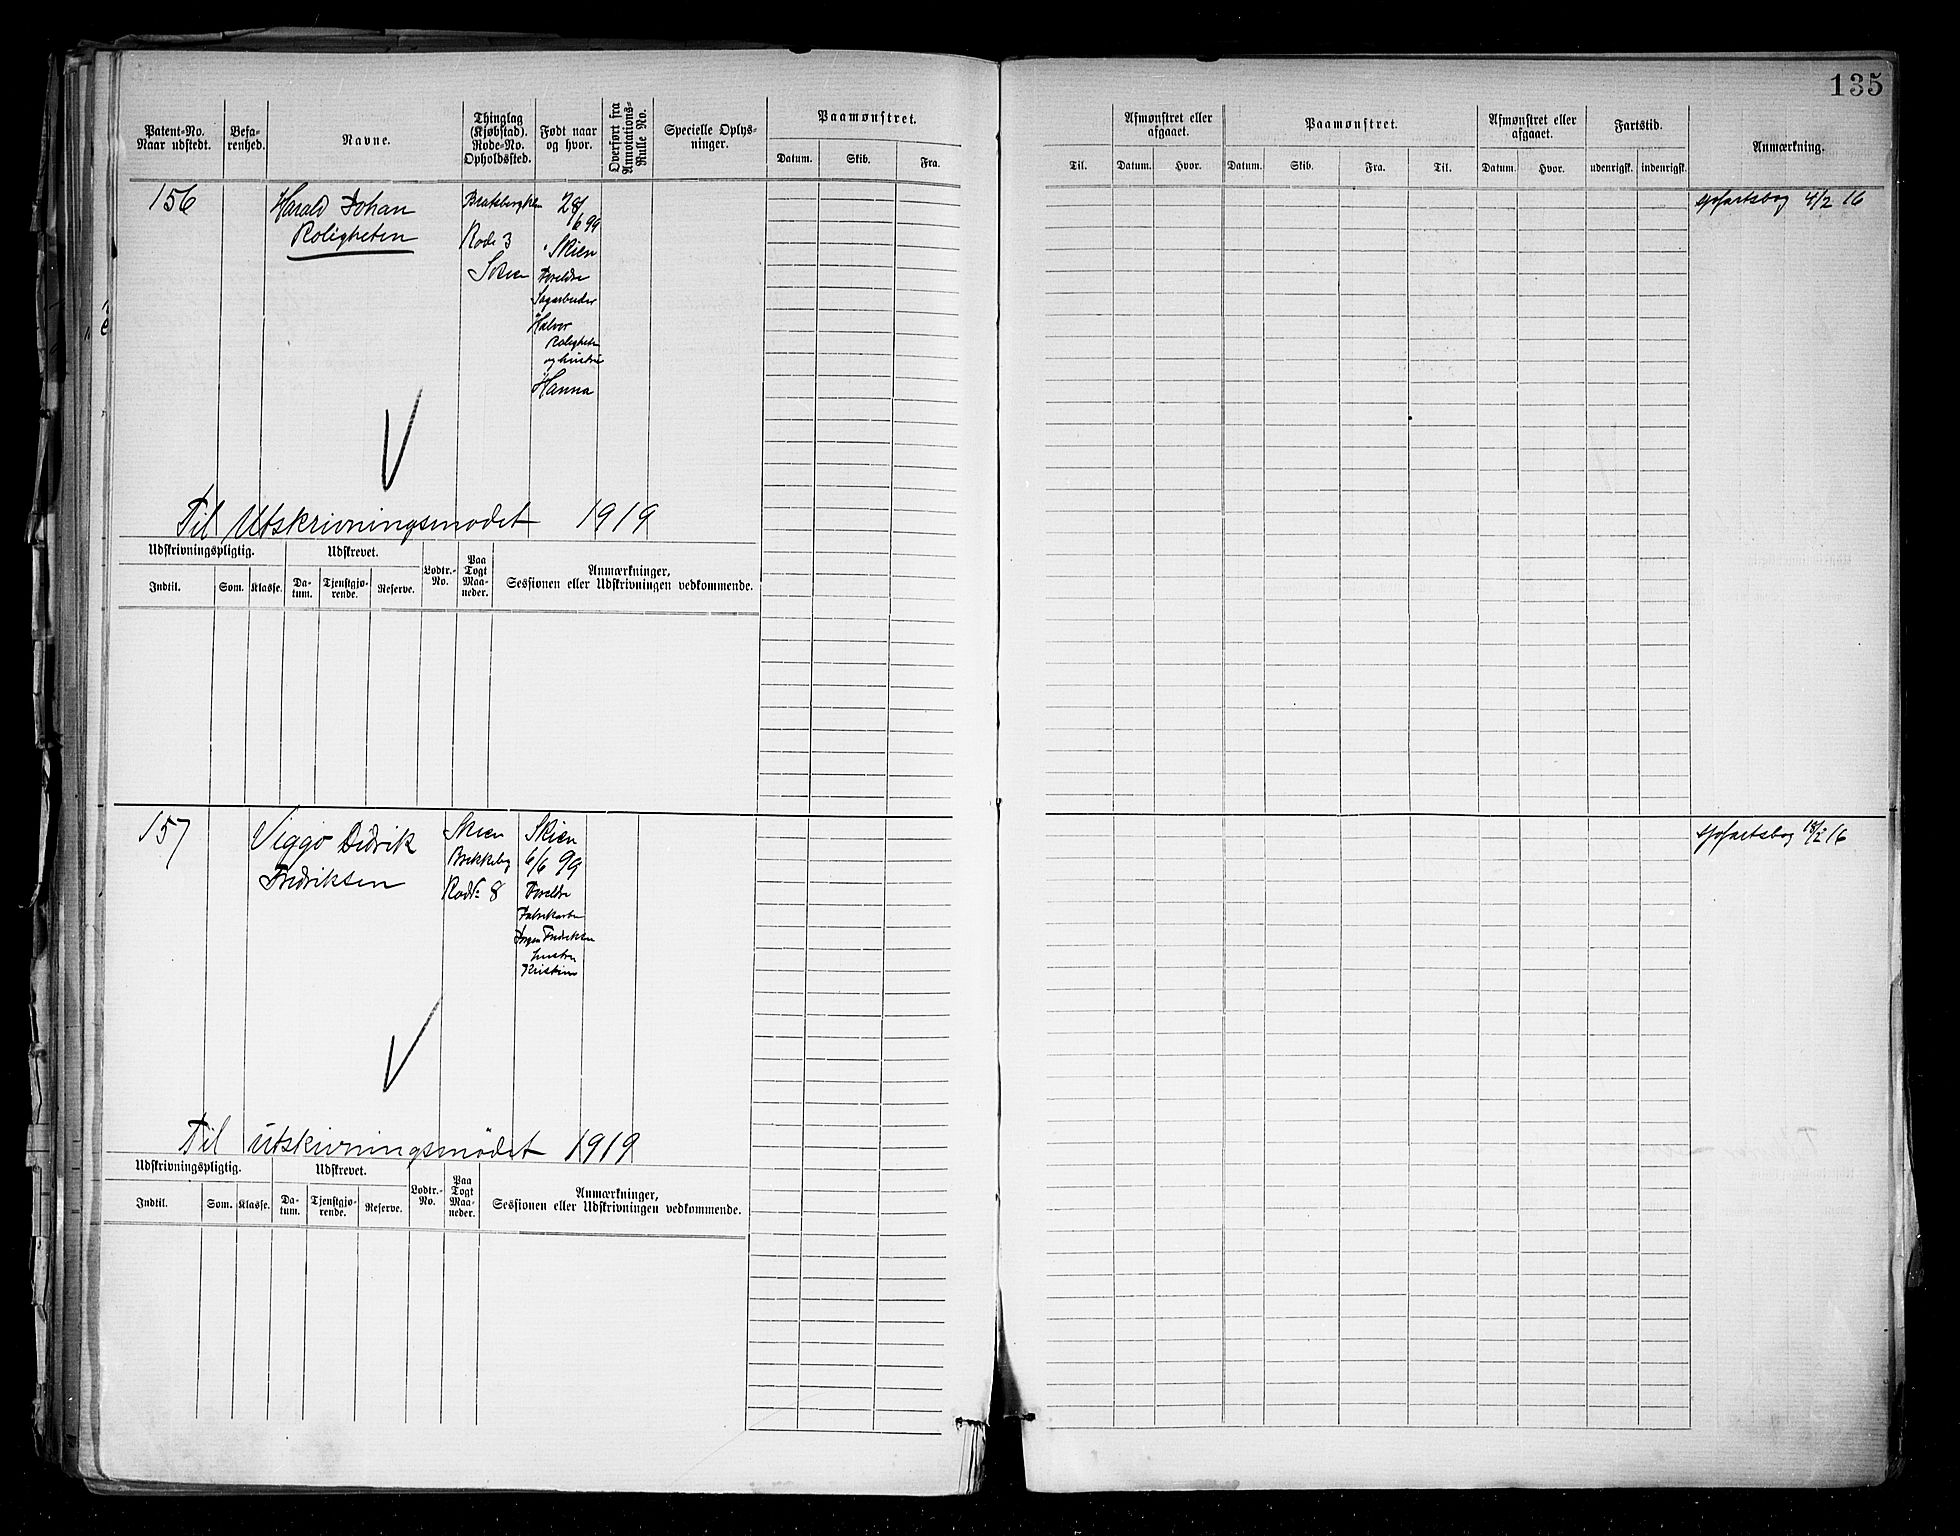 135
Patent-No. Naar udstedt.
Befa-renhed.
Navne.
Thinglag (Kjøbstad). Rode-No. Opholdssted.
Født naar og hvor.
Overført fra Annotations-Rulle No.
Specielle Oplys-ninger.
Paamønstret.
Datum. Skib. Fra.
Til.
Afmønstret eller afgaaet.
Datum. Hvor.
Paamønstret.
Datum. Skib. Fra. Til.
Afmønstret eller afgaaet.
Datum. Hvor.
Fartstid.
udenrigsk. indenrigsk.
Anmærkning.
156
Harald Johan
Roligheten
Rode 3
Skien
28/6 99
Skien
Foreldre
Sagarbeider
Halvor
Roligheten
og hustru
Hanna
Sjøfartsbog 4/2 16
Til Utskrivningsmødet 1919
Udskrivningspligtig.
Indtil. Som. Klasse.
Udskrevet.
Da-tum. Tjenstgjø-rende. Reserve.
Lodtr.-No.
Paa Togt Maa-neder.
Anmærkninger,
Sessionen eller Udskrivningen vedkommende.
157
Viggo Didrik
Fredriksen
Skien
Rode 8
Skien
6/6 99
Foreldre
Fredriksen
hustru
Kristine
Sjøfartsbog 18/2 16
Til utskivningsmødet 1919
Udskrivningspligtig.
Indtil. Som. Klasse.
Udskrevet.
Da-tum. Tjenstgjø-rende. Reserve.
Lodtr.-No.
Paa Togt Maa-neder.
Anmærkninger,
Sessionen eller Udskrivningen vedkommende.